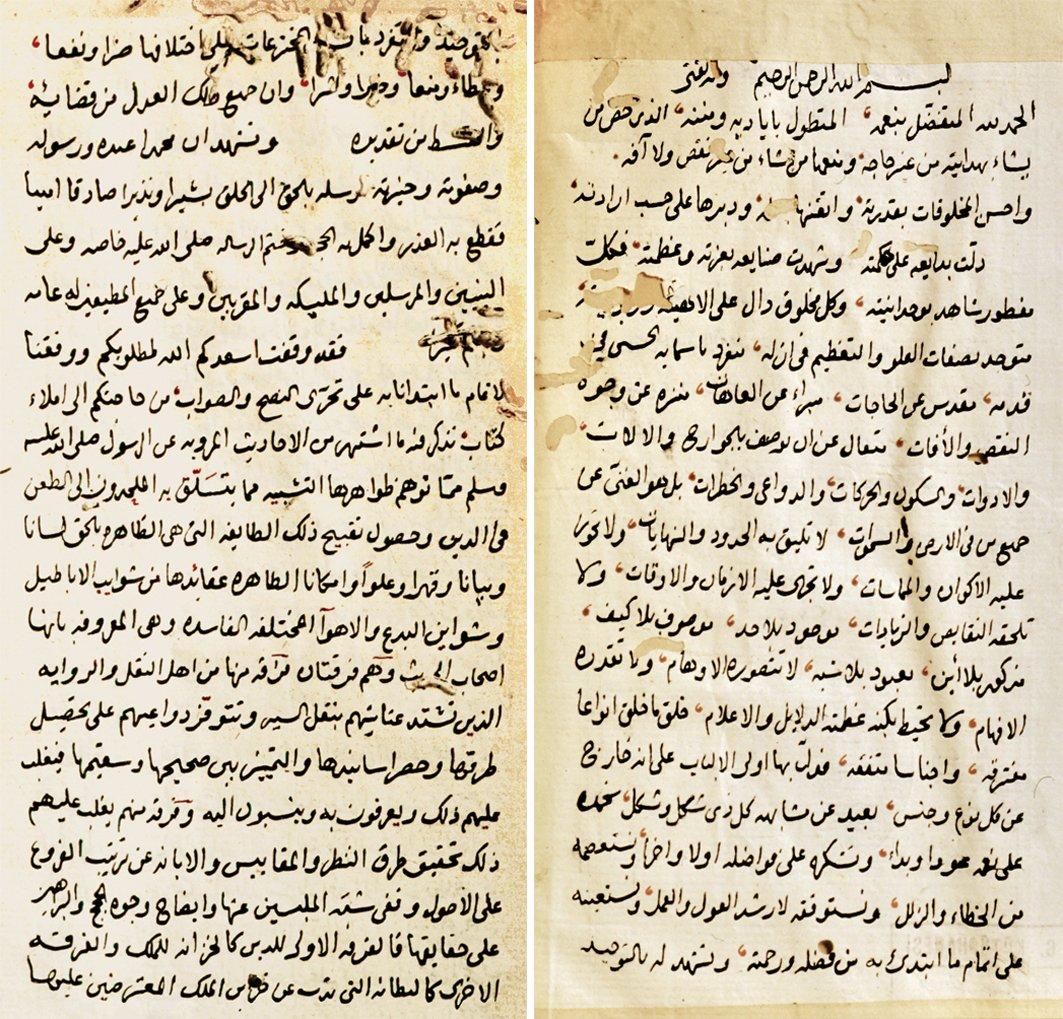 بسم الله الرحمن الرحيم
الحمد لله المتفضل بنعمه المتطول باياديه ومننه الذي خص من
يشاء بهدايته من غير حاجه ومنعها من شاء من غير نقص ولا آفه
واحسن المخلوقات بقدرته واتقنها ودبرها على حسب ارادته
دلت بدايعه على حكمته وشهدت صنايعه بعزته وعظمته فكل
مفطور شاهد بوحدانيته وكل مخلوق دال على الاهيته
متوحد بصفات العلو والتعظيم في ازله متفرد باسمايه الحسنى في
قدمه مقدس عن الحاجات مبراء عن العاهات منزه عن وجوه
النقص والأفات متعال عن ان يوصف بالجوارح والالات
والادوات والسكون والحركات والدواعي والخطرات بل هو الغني عن
جميع من في الارض والسموات لا تليق به الحدود والنهايات ولا تجوز
عليه الاكوان والمماسات ولا تجري عليه الازمان والاوقات ولا
تلحقه النقايص والزيادات موجود بلا حد موصوف بلا كيف
مذكور بلا أين معبود بلا شبه لا تتصوره الاوهام ولا تقدره
الافهام ولا تحيط بكنه عظمته الدلايل والاعلام خلق ما خلق انواعا
متفرقه واجناسا متفقه فدل بها اولي الالباب على انه خارج
عن كل نوع وجنس بعيد عن مشابهة كل ذي شكل وشكل نحمده
على نعمه عودا وبداء ونشكره على فواضله اولا واخرا ونستعصمه
من الخطاء والزلل ونستوفقه لارشد القول والعمل ونستعينه
على اتمام ما ابتدئ به من فضله ورحمته ونشهد له بالتوحيد
بالتوحيد والتفرد المخترعات على اختلافها ضرا ونفعا
وعطاء ومنعا وخيرا وشرا وان جميع ذلك العدل من قضايئه
والقسط من تقديره ونشهد ان محمدا عبده ورسوله
وصفوته وخيرته ارسله بالحق الى الخلق بشيرا ونذيرا صادقا امينا
فقطع به العذر واكمل به الحجه وختم الرساله صلى الله عليه خاصه وعلى
النبيين والمرسلين والمليكه والمقربين وعلى جميع المطيعين له عامه
فقد وقفت اسعدكم الله لمطلوبكم ووفقنا
لاتمام ما ابتدانا به على تحرى النصح والصواب من حاجتكم الى املاء
كتاب نذكر فيه ما اشتهر من الاحاديث المرويه عن الرسول صلى الله عليه
وسلم مما توهم ظواهرها التشبيه مما يتسلق به الملحدون الى الطعن
في الدين وحصول تقبيح ذلك الطايفه التي هي الظاهره بالحق لسانا
وبيانا وقهرا وعلوا وامكانا الطاهره عقائدها من شوايب الاباطيل
وشواين البدع والاهوآ المختلفه الفاسده وهي المعروفه بانها
اصحاب الحديث وهم فرقتان فرقه منها من اهل النقل والروايه
الذين تشتد عنايتهم بنقل السير وتتوفر دواعيهم على تحصيل
طرقها وحصر اسانيدها والتمييز بين صحيحها وسقيمها فيغلب
عليهم ذلك ويعرفون به وينسبون اليه وفرقه منهم يغلب عليهم
ذلك تحقيق طرق النظر والمقاييس والابانه عن ترتيب الفروع
على الاصول ونفى شبه الملبسين عنها وايضاح وجوه الحجج والبراهين
على حقايقها فالفرقه الاولى للدين كالخزانه للملك والفرقه
الاخرى كالبطانه التي تذب عن خزاين الملك المعترضين عليها